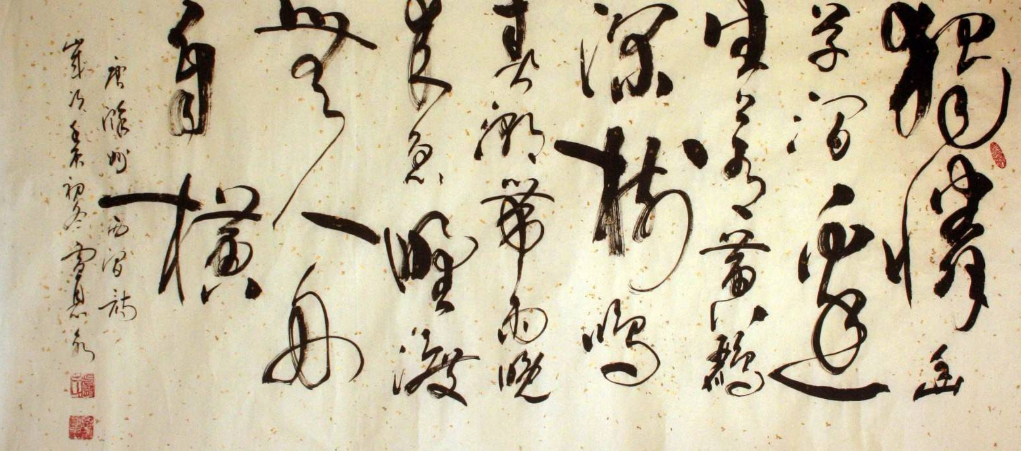 獨憐幽
草澗邊
生上有黃鸝
深樹鳴
春潮帶雨晚
来急野渡
無人舟
自橫
唐滁州西澗詩
歲次初冬